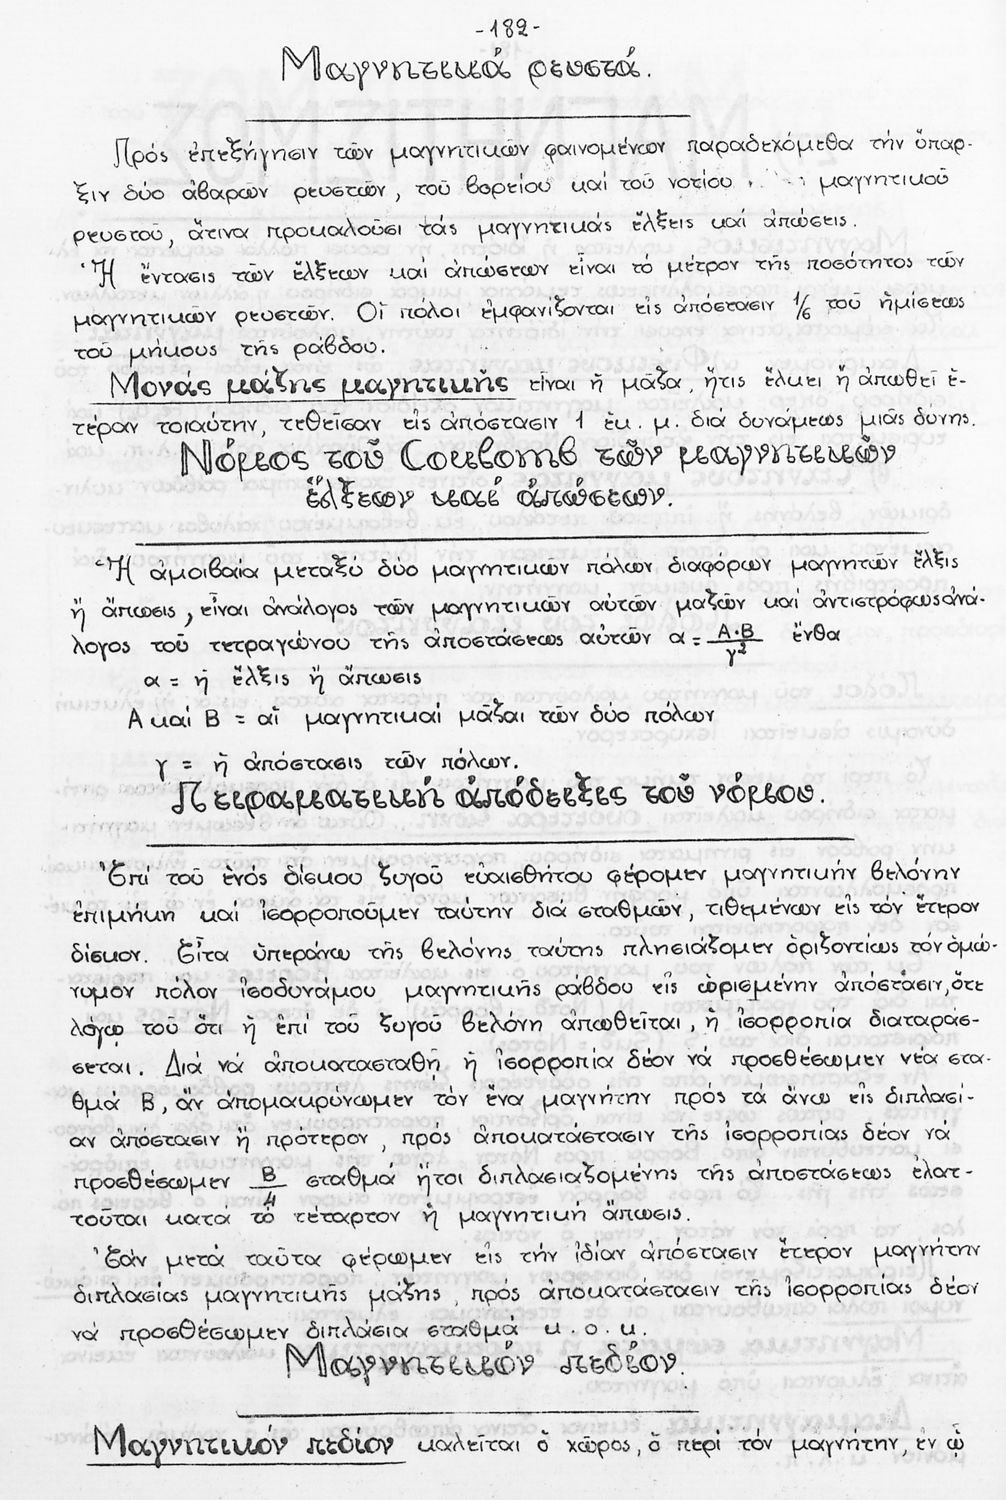 -182-
Μαγνητικά ρευστά.
Πρός ἐπεξήγησιν τῶν μαγνητικῶν φαινομένων παραδεχόμεθα τήν ὕπαρ-
ξιν δύο ἀβαρῶν ρευστῶν, τοῦ βορείου καί τοῦ νοτίου μαγνητικοῦ
ρευστοῦ, ἅτινα προκαλοῦσι τάς μαγνητικάς ἕλξεις καί ἀπώσεις.
Ἡ ἔντασις τῶν ἕλξεων καί ἀπώσεων εἶναι τό μέτρον τῆς ποσότητος τῶν
μαγνητικῶν ρευστῶν. Οἱ πόλοι ἐμφανίζονται εἰς ἀπόστασιν 1/6 τοῦ ἡμίσεως
τοῦ μήκους τῆς ράβδου.
Μονάς μάζης μαγητικῆς εἶναι ἡ μᾶζα, ἥτις ἕλκει ἤ ἀπωθεῖ ἑ-
τέραν τοιαύτην, τεθεῖσαν εἰς ἀπόστασιν 1 ἑκ. μ. διά δυνάμεως μιᾶς δύνης.
Νόμος τοῦ Coulomb τῶν μαγνητικῶν
ἕλξεων καί ἀπώσεων.
Ἡ ἀμοιβαία μεταξύ δύο μαγνητικῶν πόλων διαφόρων μαγνητῶν ἕλξις
ἤ ἄπωσις, εἶναι ἀνάλογος τῶν μαγνητικῶν αὐτῶν μαζῶν καί ἀντιστρόφως ἀνά-
λογος τοῦ τετραγώνου τῆς ἀποστάσεως αὐτῶν α = Α·Β/γ² ἔνθα
α = ἡ ἕλξις ἤ ἄπωσις
Α καί Β = αἱ μαγνητικαί μᾶζαι τῶν δύο πόλων
γ = ἡ ἀπόστασις τῶν πόλων.
Πειραματική ἀπόδειξις τοῦ νόμου.
Ἐπί τοῦ ἑνός δίσκου ζυγοῦ εὐαισθήτου φέρομεν μαγνητικήν βελόνην
ἐπιμήκη καί ἰσορροποῦμεν ταύτην διά σταθμῶν, τιθεμένων εἰς τόν ἕτερον
δίσκον. Εἶτα ὑπεράνω τῆς βελόνης ταύτης πλησιάζομεν ὁριζοντίως τόν ὁμώ-
νυμον πόλον ἰσοδυνάμου μαγνητικῆς ράβδου εἰς ὡρισμένην ἀπόστασιν, ὅτε
λόγῳ τοῦ ὅτι ἡ ἐπί τοῦ ζυγοῦ βελόνη ἀπωθεῖται, ἡ ἰσορροπία διαταράσ-
σεται. Διά νά ἀποκατασταθῇ ἡ ἰσορροπία δέον νά προσθέσωμεν νέα στα-
θμά Β, ἄν ἀπομακρύνωμεν τόν ἕνα μαγνήτην πρός τά ἄνω εἰς διπλασί-
αν ἀπόστασιν ἤ πρότερον, πρός ἀποκατάστασιν τῆς ἰσορροπίας δέον νά
προσθέσωμεν Β/4 σταθμά ἤτοι διπλασιαζομένης τῆς ἀποστάσεως ἐλατ-
τοῦται κατά τό τέταρτον ἡ μαγνητική ἄπωσις.
Ἐάν μετά ταῦτα φέρωμεν εἰς τήν ἰδίαν ἀπόστασιν ἕτερον μαγνήτην
διπλασίας μαγνητικῆς μάζης, πρός ἀποκατάστασιν τῆς ἰσορροπίας δέον
νά προσθέσωμεν διπλάσια σταθμά κ.ο.κ.
Μαγνητικόν πεδίον.
Μαγνητικόν πεδίον καλεῖται ὁ χῶρος, ὁ περί τόν μαγνήτην, ἐν ᾧ